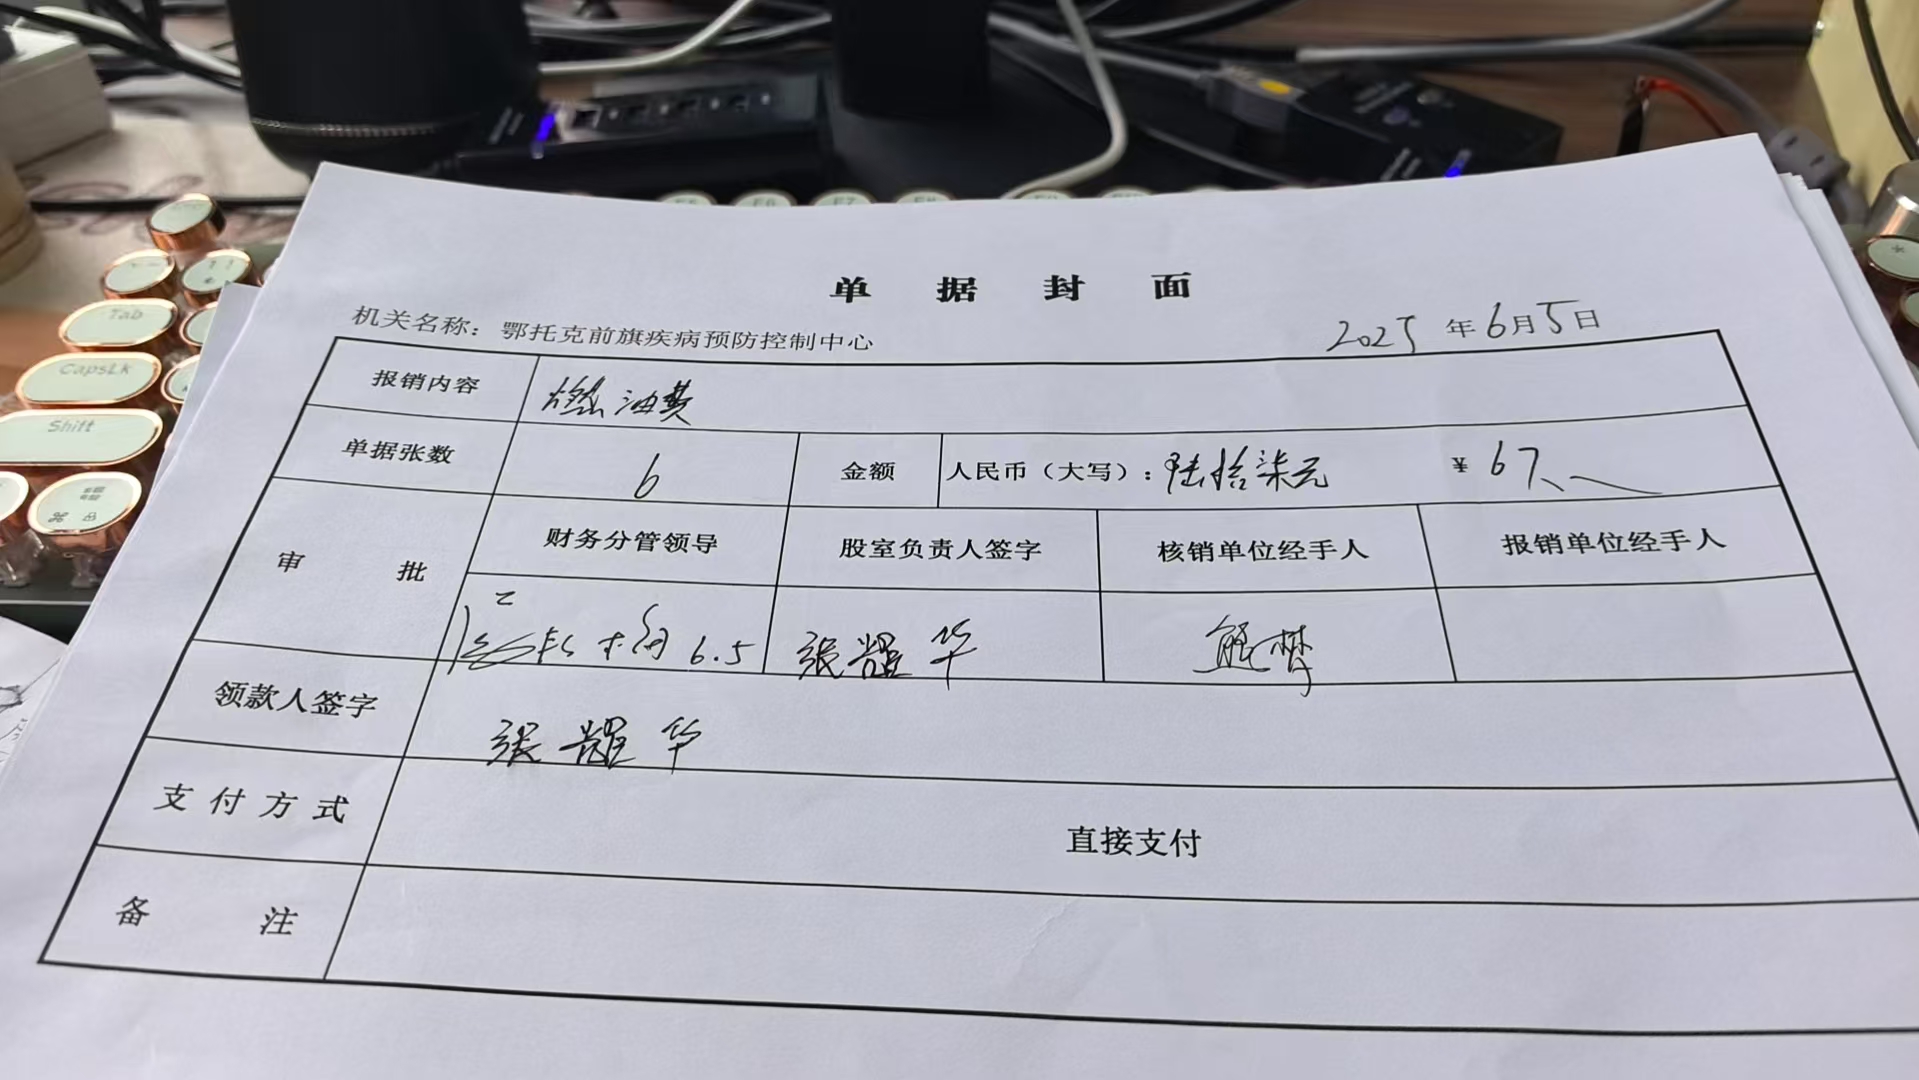 单据封面
机关名称：鄂托克前旗疾病预防控制中心 2025年6月5日
报销内容 燃油费
单据张数 6 金额 人民币（大写）：陆拾柒元 ¥67
审批 财务分管领导 股室负责人签字 核销单位经手人 报销单位经手人
6.5 张耀华 熊梦
领款人签字 张耀华
支付方式 直接支付
备注
Tab
CapsLk
Shift